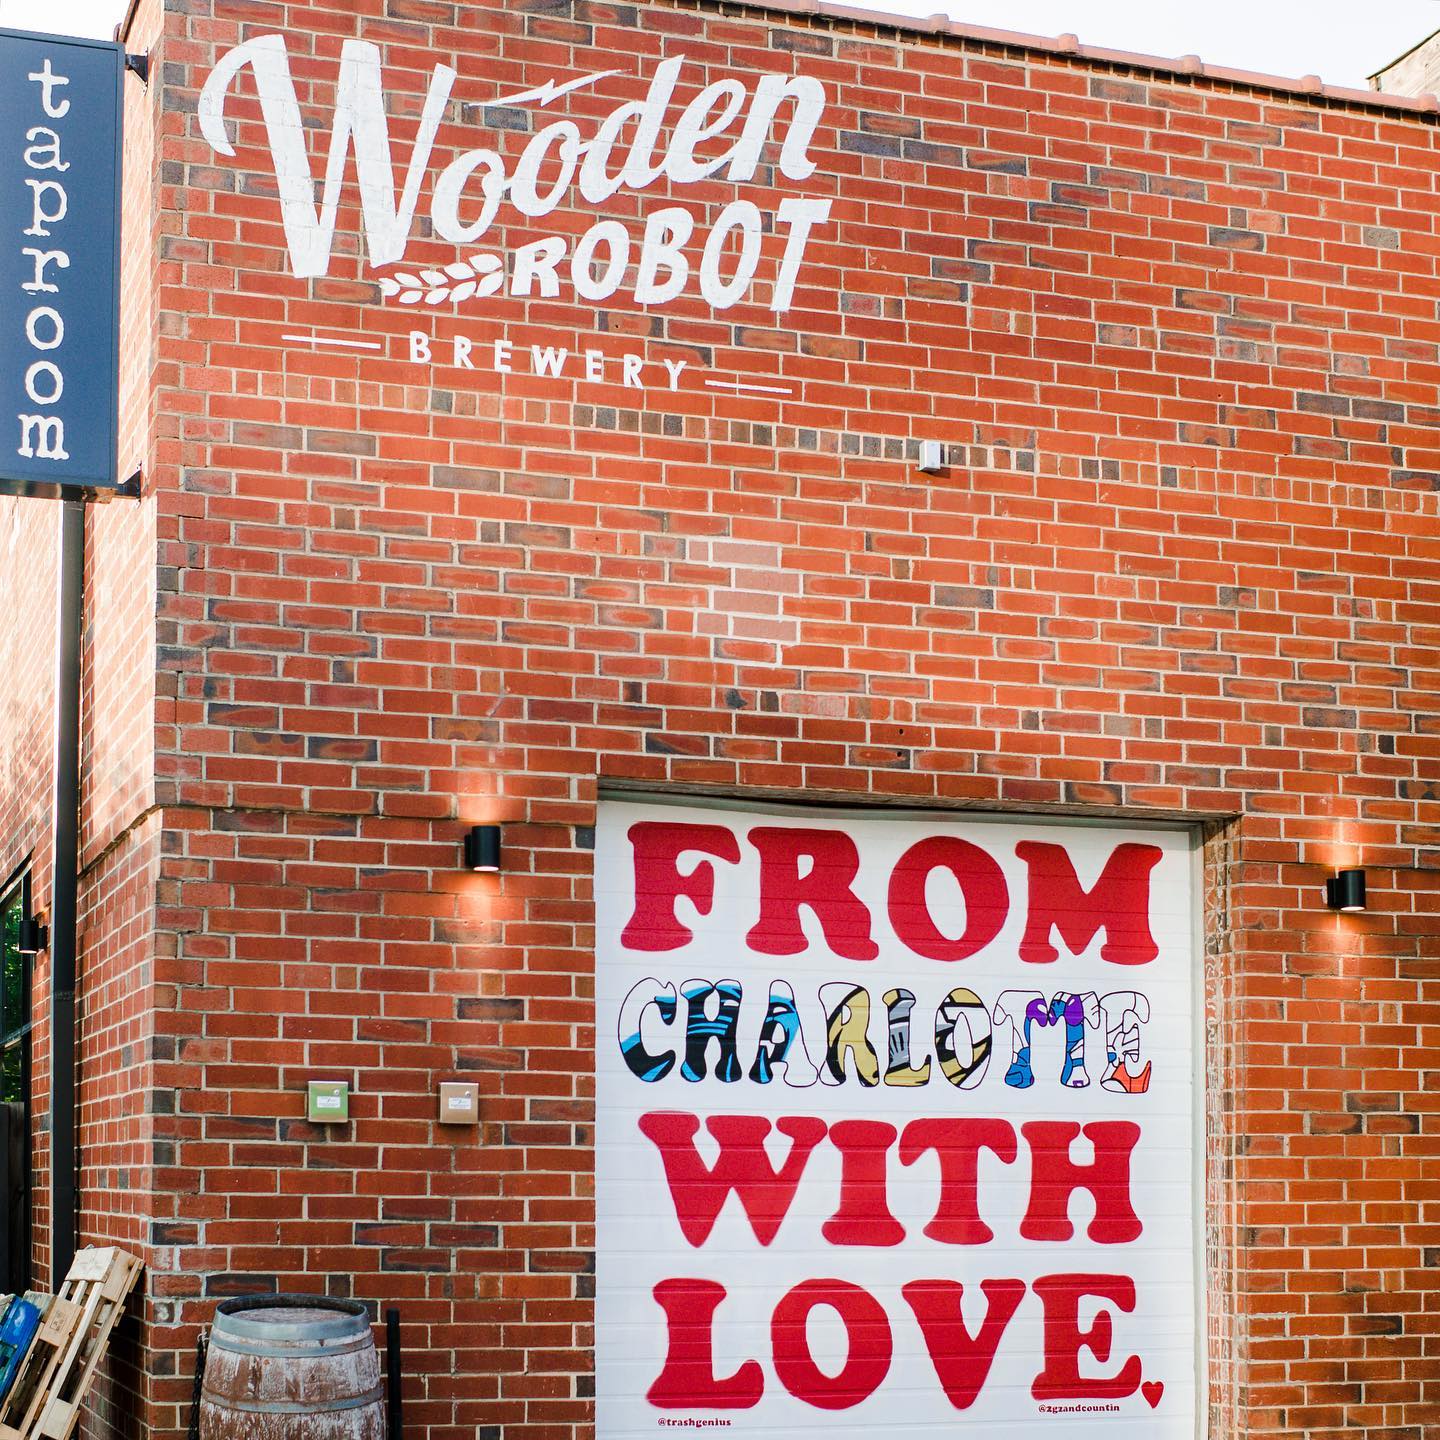 taproom
Wooden
ROBOT
BREWERY
FROM
CHARLOTTE
WITH
LOVE
@trashgenius
@2gzandcountin